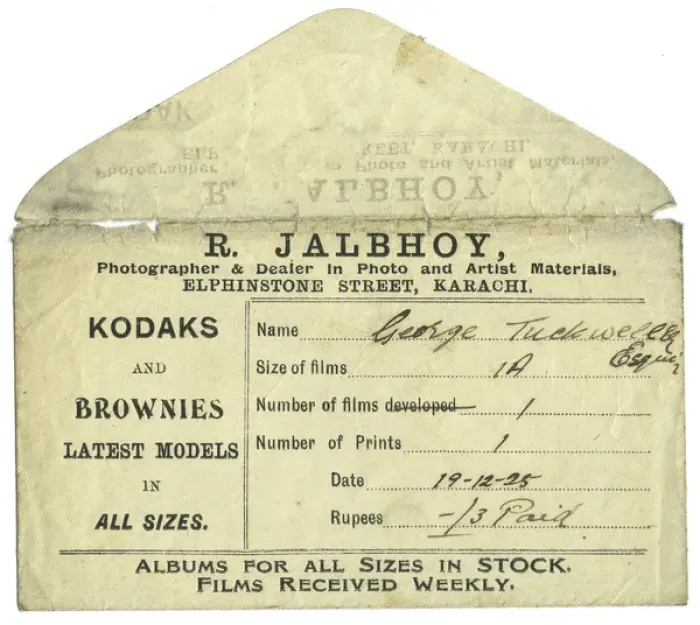 R. JALBHOY,
Photographer & Dealer in Photo and Artist Materials,
ELPHINSTONE STREET, KARACHI.
KODAKS
AND
BROWNIES
LATEST MODELS
IN
ALL SIZES.
Name George Tuckwell
Esqui
Size of films 1A
Number of films developed 1
Number of Prints 1
Date 19-12-25
Rupees -/3 Paid
ALBUMS FOR ALL SIZES IN STOCK.
FILMS RECEIVED WEEKLY.